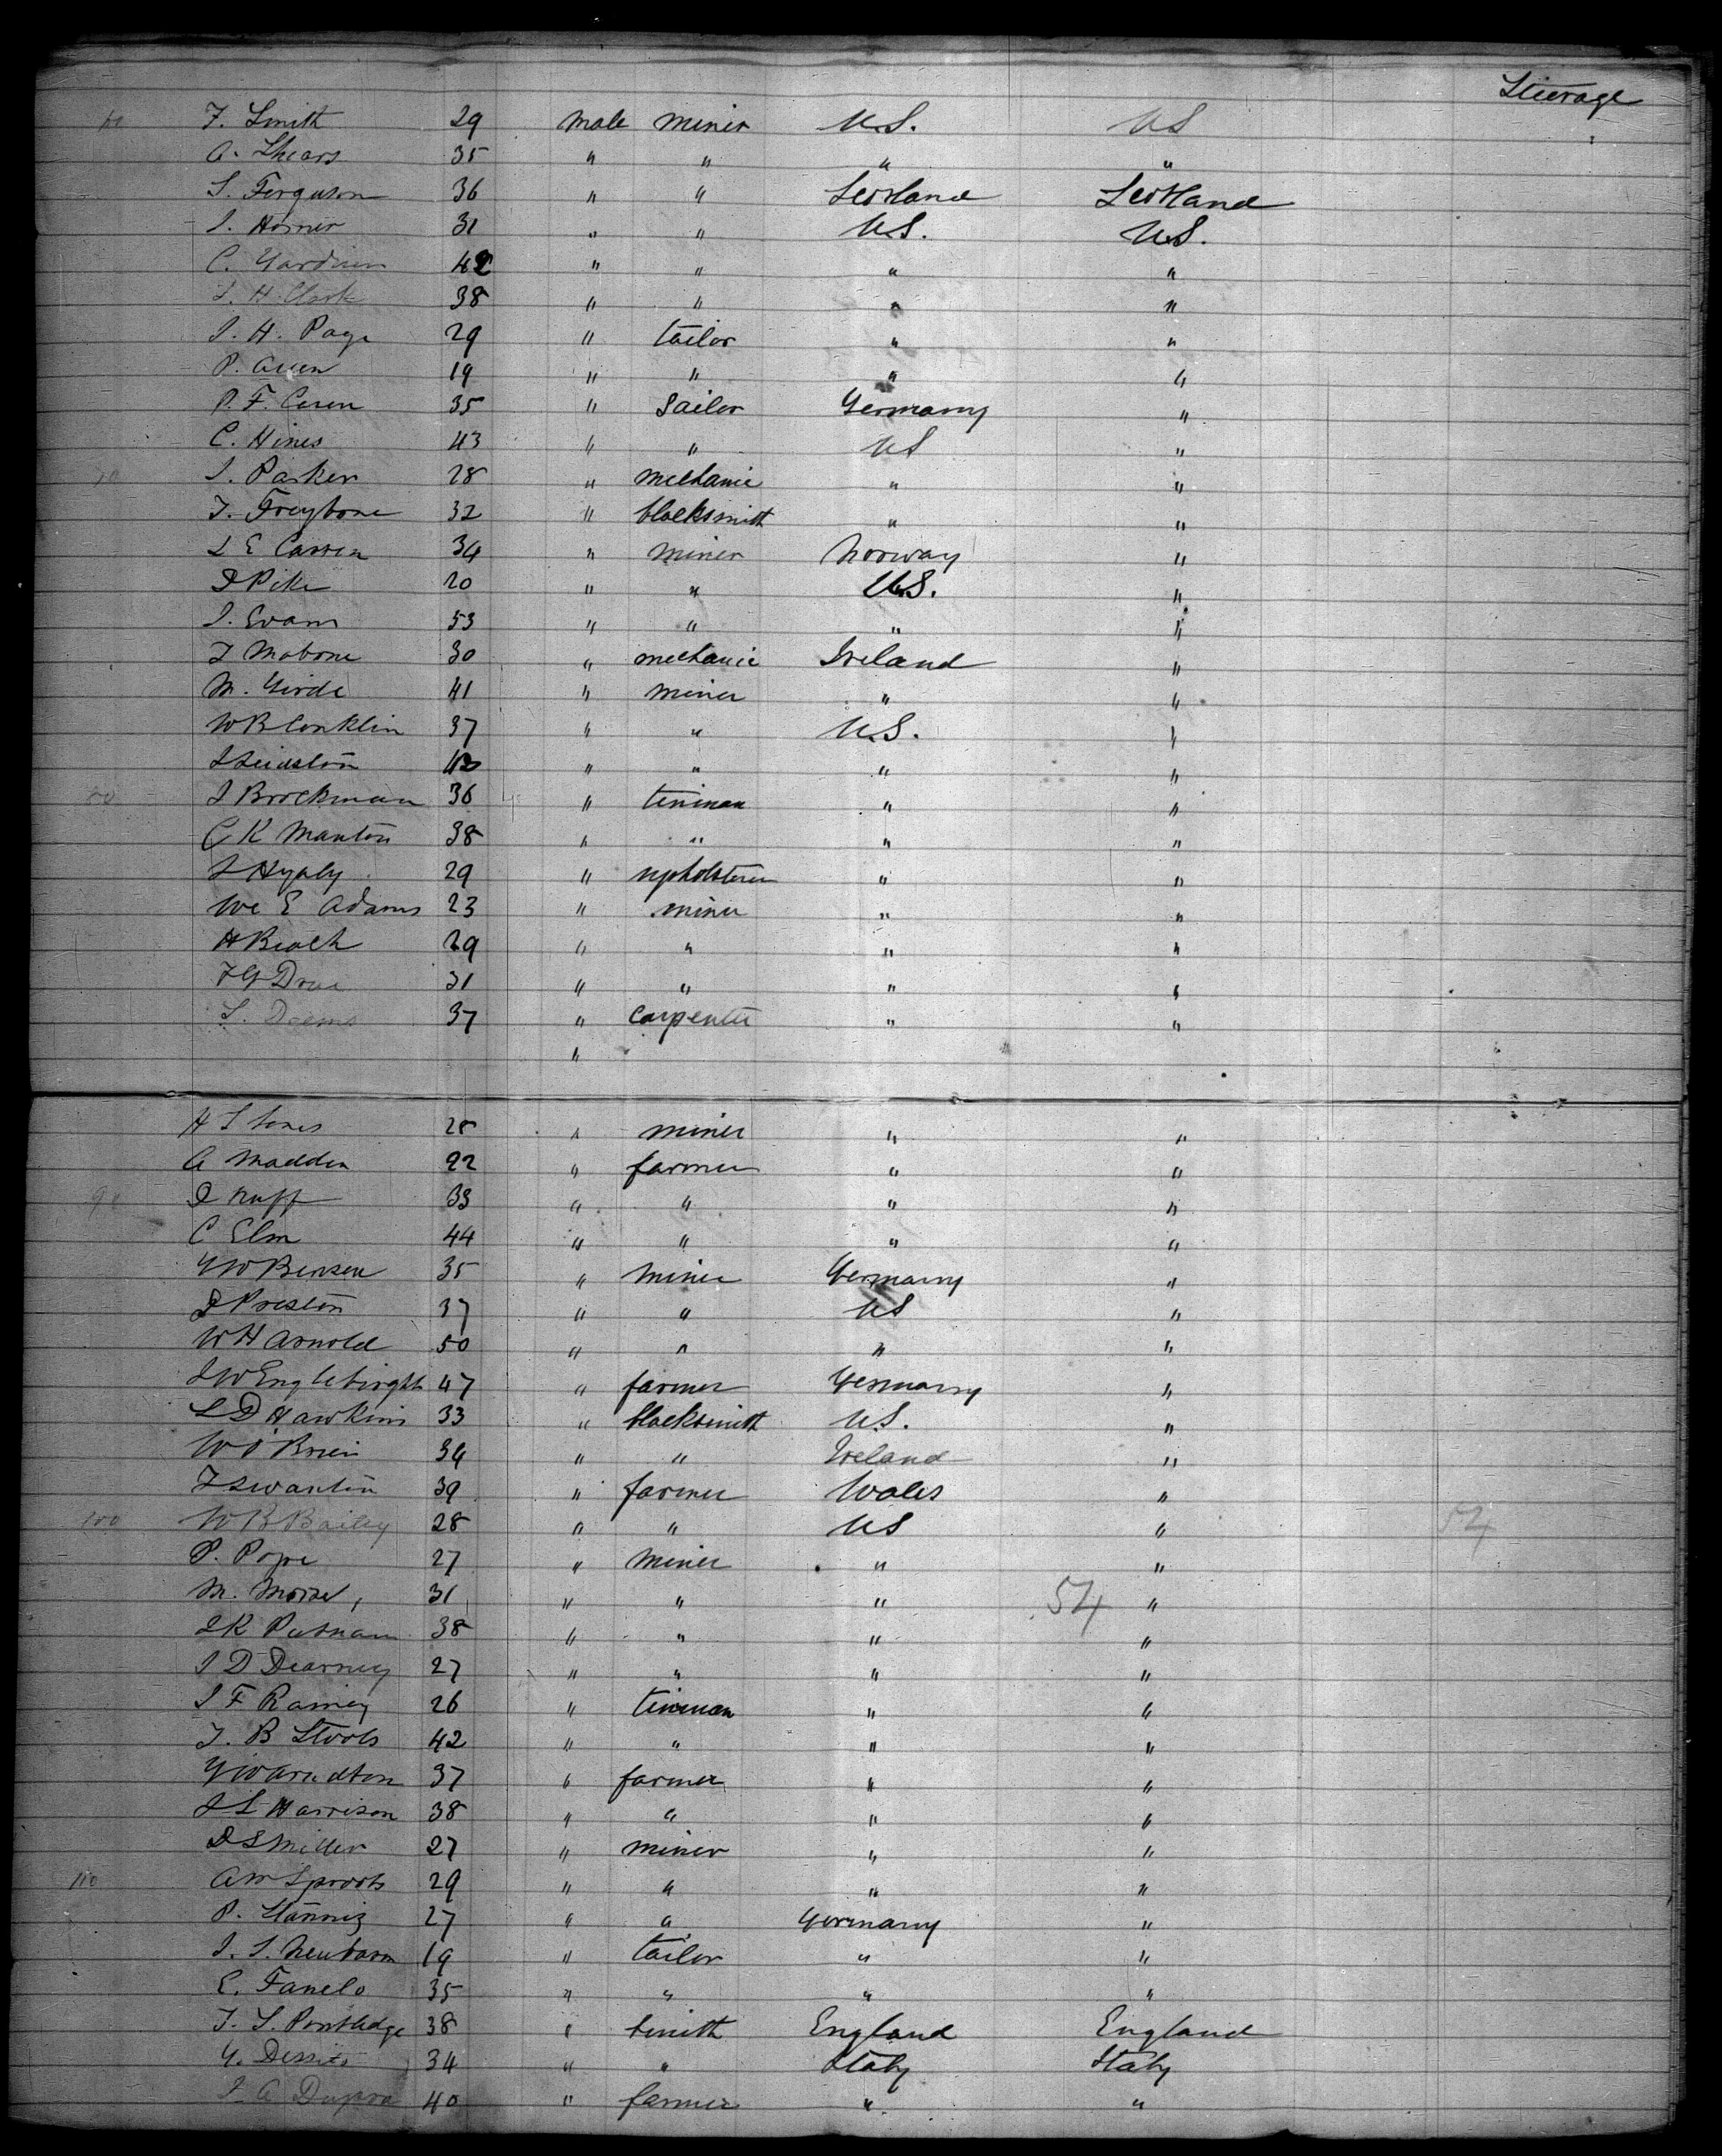 Steerage
60 F. Smith 29 male miner U.S. US
A. Shears 35 " " " "
S. Ferguson 36 " " Scotland Scotland
J. Horner 31 " " U.S. U.S.
C. Gardner 42 " " " "
S. H. Clark 38 " " " "
J. H. Page 29 " tailor " "
P. 19 " " " "
P. F. 35 " Sailor Germany "
C. Hines 43 " " US "
70 J. Parker 28 " mechanic " "
32 " blacksmith " "
34 " miner Norway "
Pike 20 " " U.S. "
J. Evans 53 " " " "
30 " mechanic Ireland "
M. 41 " miner " "
W B Conklin 37 " " U.S. "
" " " "
80 J Brockman 36 " tinman " "
C K Manton 38 " " " "
29 " upholsterer " "
E Adams 23 " miner " "
H Beach 29 " " " "
31 " " " "
37 " carpenter " "
"
H 28 " miner " "
A Madden 22 " farmer " "
90 33 " " " "
C Elm 44 " " " "
G W Bensen 35 " miner Germany "
D Preston 37 " " US "
W H Arnold 50 " " " "
J W 47 " farmer Germany "
L D Hawkins 33 " blacksmith U.S. "
W O'Brien 34 " " Ireland "
Swanton 39 " farmer Wales "
100 W B Bailey 28 " " US " 54
P. Pope 27 " miner " "
M. Morse, 31 " " " 54 "
K Putnam 38 " " " "
J D Dearney 27 " " " "
J F Ramey 26 " tinman " "
J. B 42 " " " "
37 " farmer " "
J L Harrison 38 " " " "
D S Miller 27 " miner " "
110 29 " " " "
P. 27 " " Germany "
J. S. 19 " tailor " "
E. Fanelo 35 " " " "
38 " England England
34 " " Italy Italy
J A 40 " farmer " "